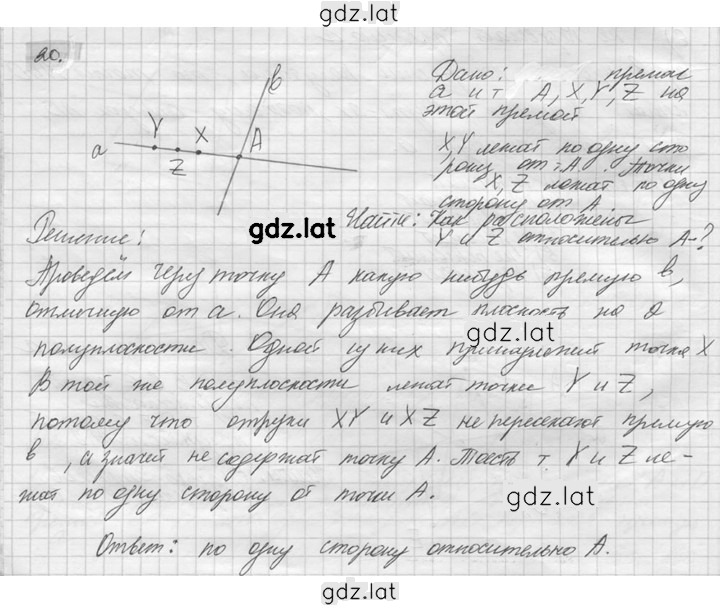 gdz.lat
20.
b
Y
X
A
a
Z
Дано: прямая
a и т A, X, Y, Z на
этой прямой
X, Y лежат по одну сто
рону от т A. Точки
X, Z лежат по одну
сторону от A.
Найти: Как расположены
Y и Z относительно A-?
gdz.lat
Решение:
Проведём через точку A какую нибудь прямую b,
отличную от a. Она разбивает плоскость на 2
gdz.lat
полуплоскости. Одной из них принадлежит точка X
В той же полуплоскости лежат точки Y и Z,
потому что отрезки XY и XZ не пересекают прямую
b, а значит не содержат точку A. Тоесть т Y и Z ле-
жат по одну сторону от точки A.
gdz.lat
Ответ: по одну сторону относительно A.
gdz.lat